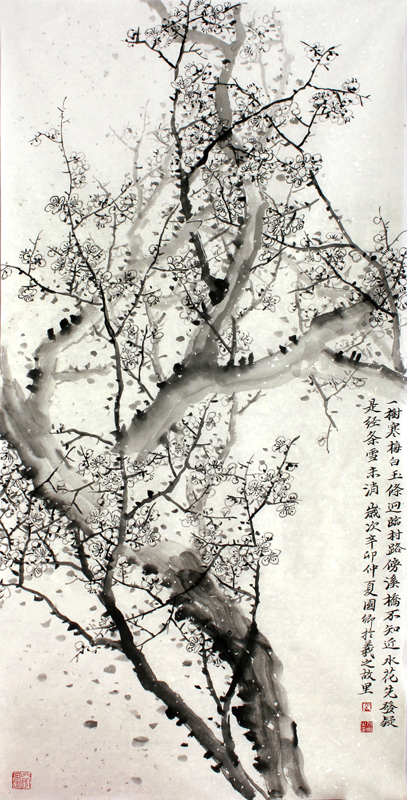 一樹寒梅白玉條迥臨村路傍溪橋不知近水花先發疑
是经冬雪未消 歲次辛卯仲夏國卿於羲之故里